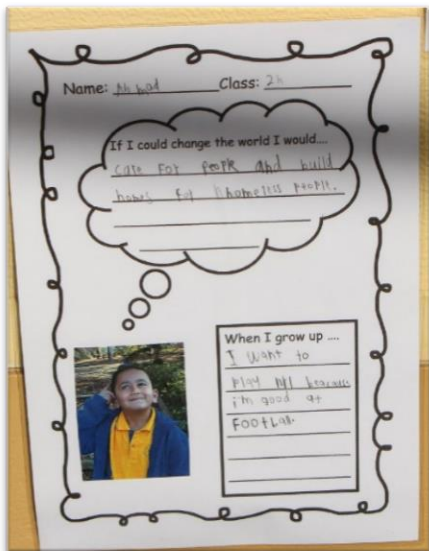 Name: Class: 2
If I could change the world I would....
care For people and build
homes for homeless people.
When I grow up ....
I want to
play nrl because
i'm good at
Football.